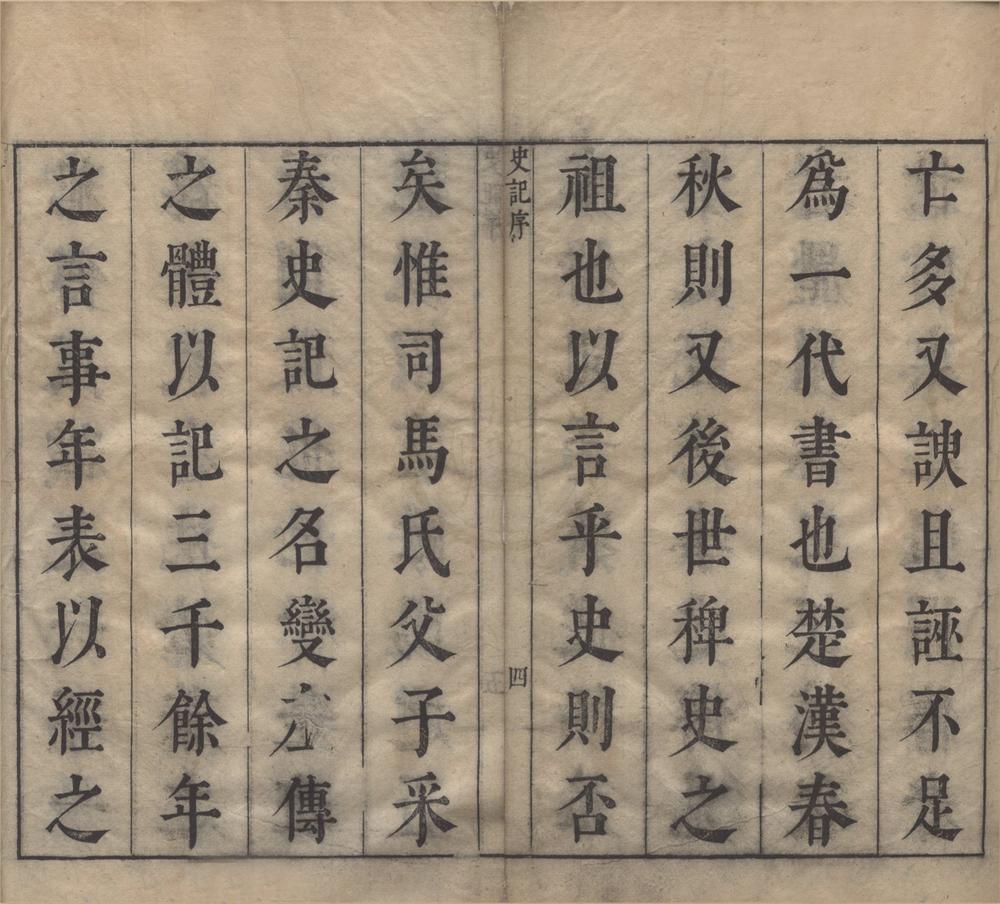 亡多又諛且誣不足
爲一代書也楚漢春
秋則又後世稗史之
祖也以言乎史則否
史記序
四
矣惟司馬氏父子采
秦史記之名變左傳
之體以記三千餘年
之言事年表以經之